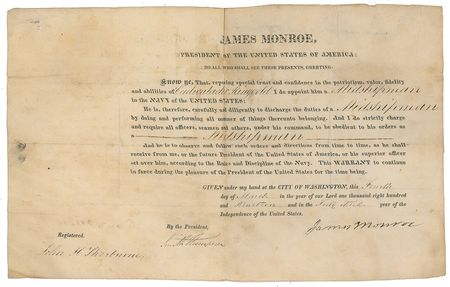 JAMES MONROE,
PRESIDENT OF THE UNITED STATES OF AMERICA:
TO ALL WHO SHALL SEE THESE PRESENTS, GREETING:
KNOW YE, That, reposing special trust and confidence in the patriotism, valor, fidelity
and abilities of I do appoint him a Midshipman
in the NAVY of the UNITED STATES:
He is, therefore, carefully and diligently to discharge the duties of a Midshipman
by doing and performing all manner of things thereunto belonging. And I do strictly charge
and require all officers, seamen and others, under his command, to be obedient to his orders as
a Midshipman
And he is to observe and follow such orders and directions from time to time, as he shall
receive from me, or the future President of the United States of America, or his superior officer
set over him, according to the Rules and Discipline of the Navy. This WARRANT to continue
in force during the pleasure of the President of the United States for the time being.
GIVEN under my hand at the CITY OF WASHINGTON, this Fourth
day of March in the year of our Lord one thousand eight hundred
and and in the year of the
Independence of the United States.
James Monroe
By the President,
Smith Thompson
Registered.
John H Sherburne